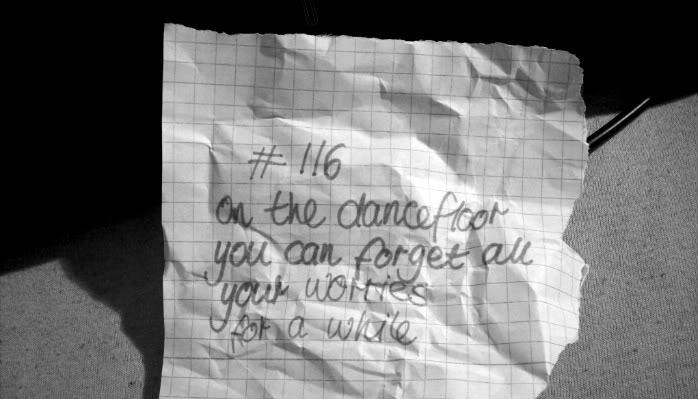 # 116
on the dancefloor
you can forget all
your worries
for a while